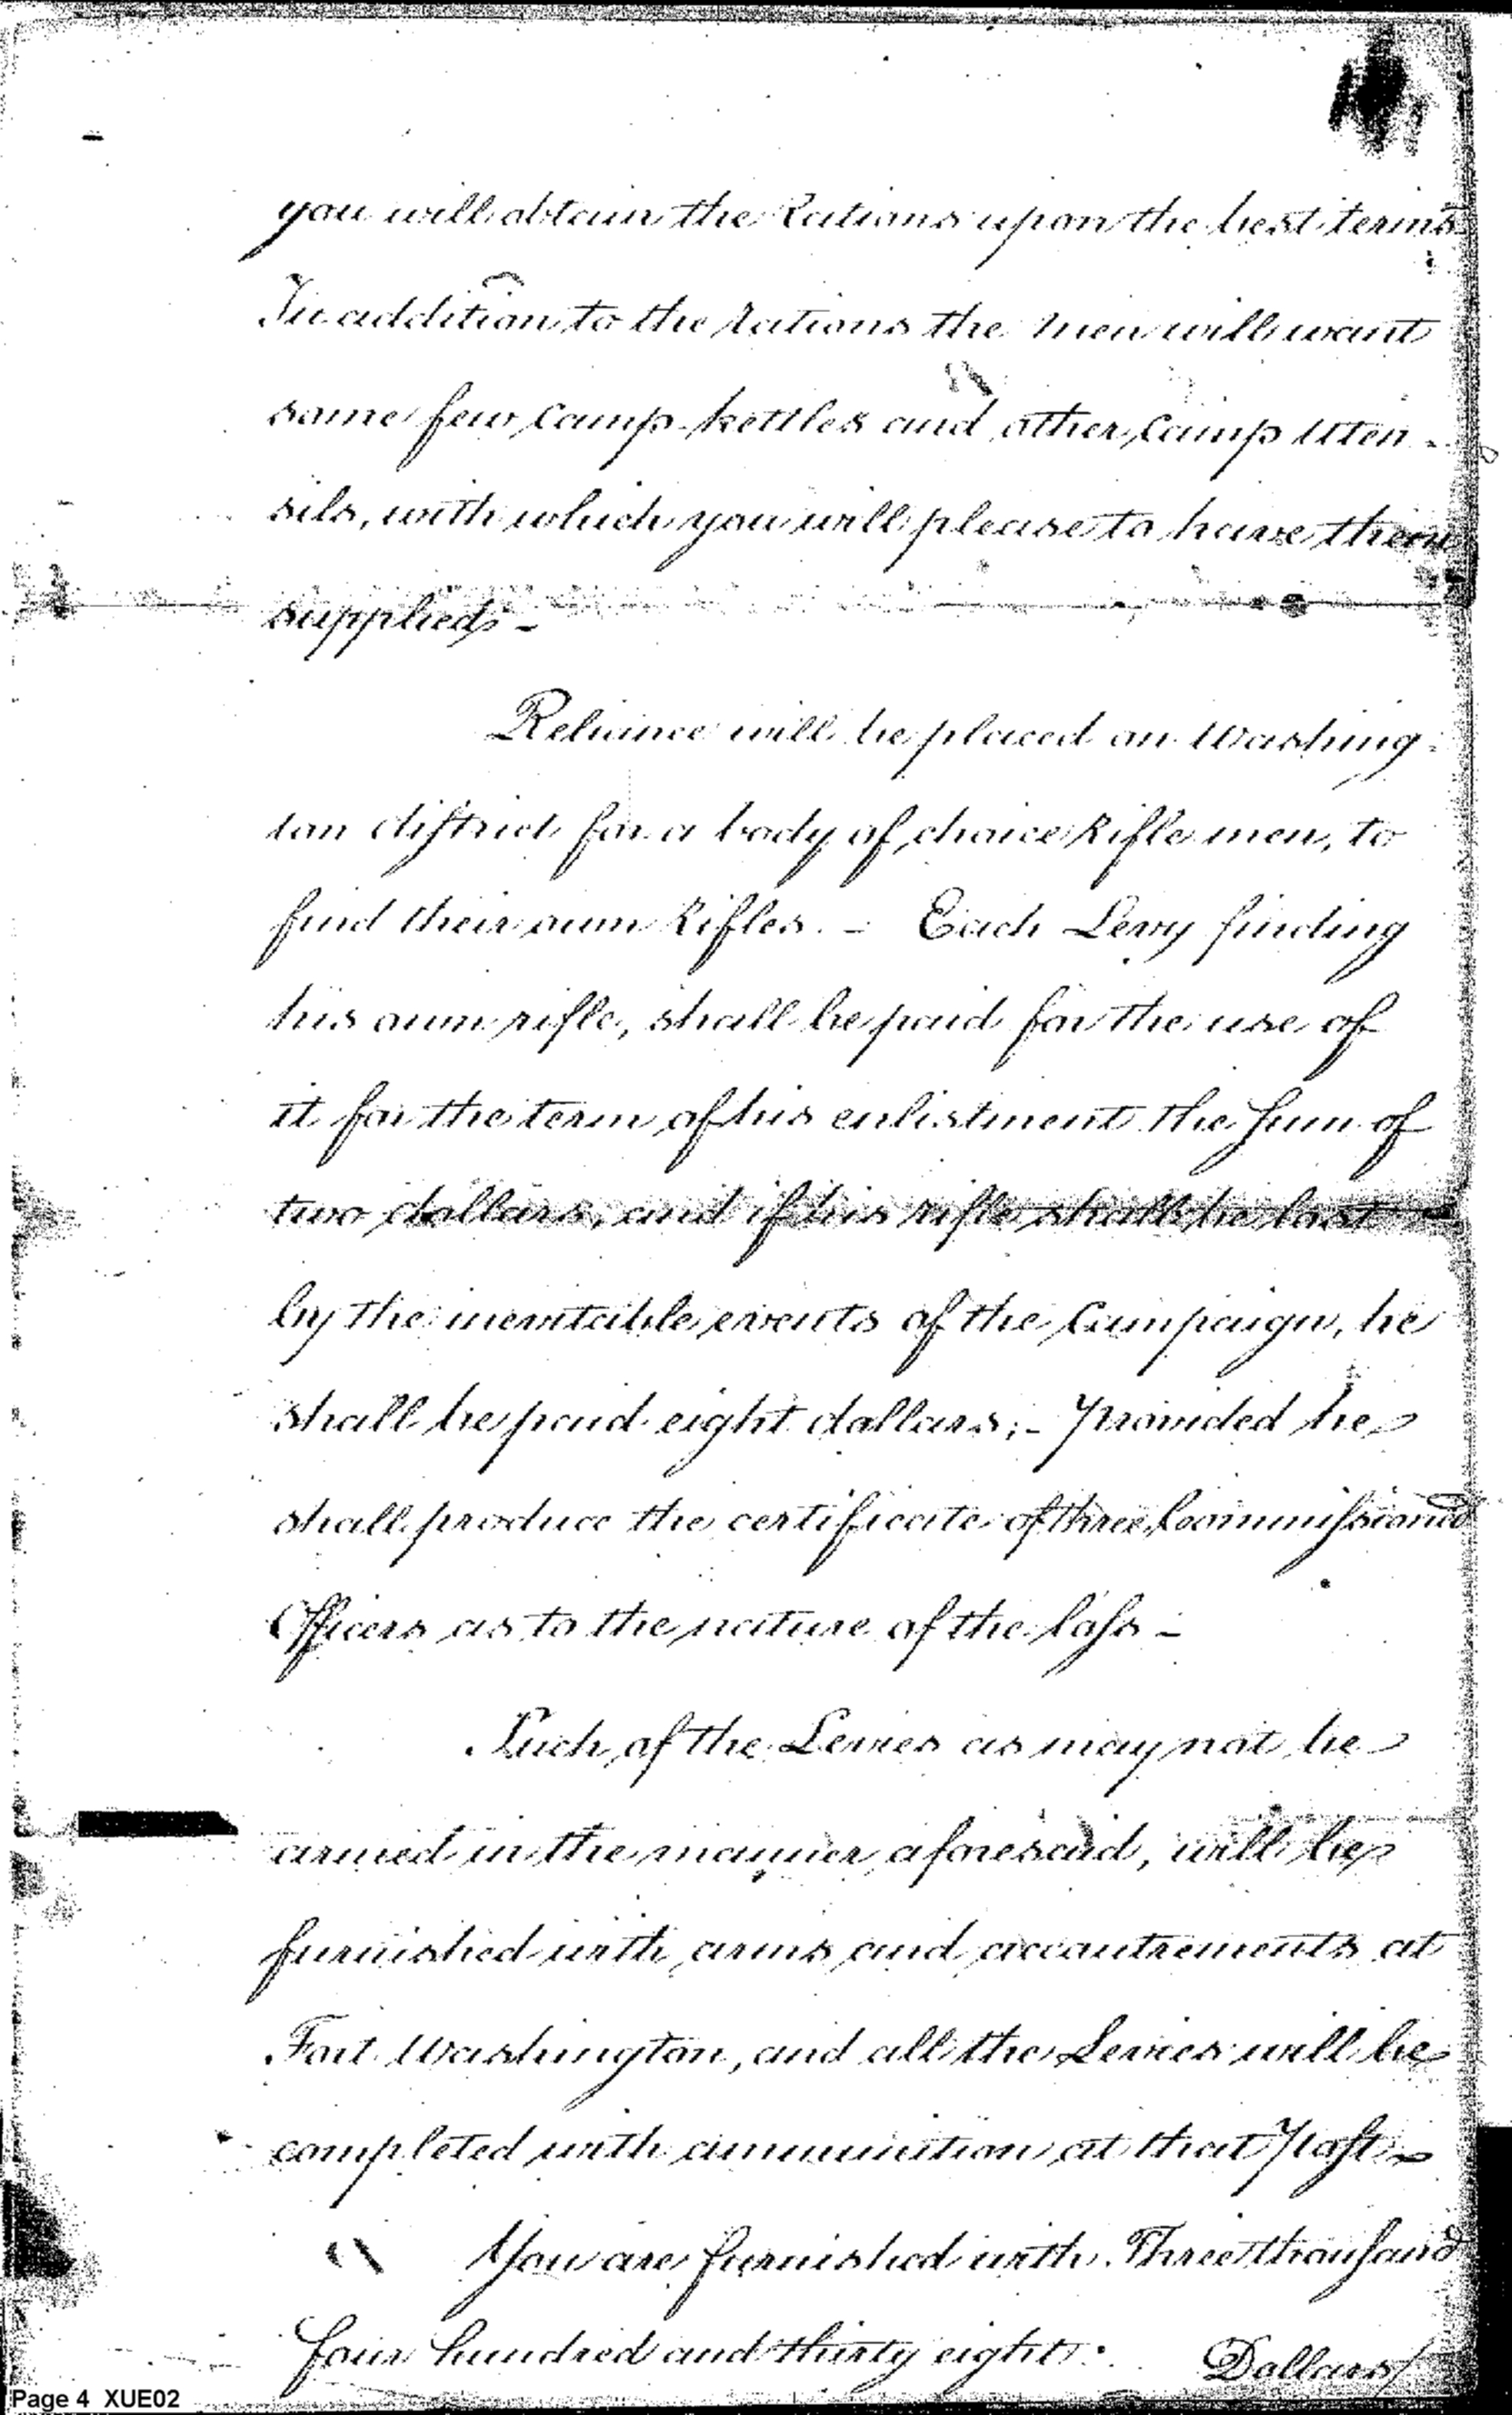 you will obtain the Rations upon the best terms
In addition to the rations the men will want
some few Camp-kettles and other Camp Uten-
sils, with which you will please to have them
supplied.-
Reliance will be placed on Washing-
ton district for a body of choice Rifle men, to
find their own Rifles. - Each Levy finding
his own rifle, shall be paid for the use of
it for the term of his enlistment the sum of
two dollars, and if his rifle shall be lost
by the inevitable events of the Campaign, he
shall be paid eight dollars;- provided he
shall produce the certificate of three Commissioned
Officers as to the nature of the loss -
Such of the Levies as may not be
armed in the manner aforesaid, will be
furnished with arms and accoutrements at
Fort Washington, and all the Levies will be
completed with ammunition at that Post -
You are furnished with Three thousand
four hundred and thirty eight Dollars/
Page 4 XUE02